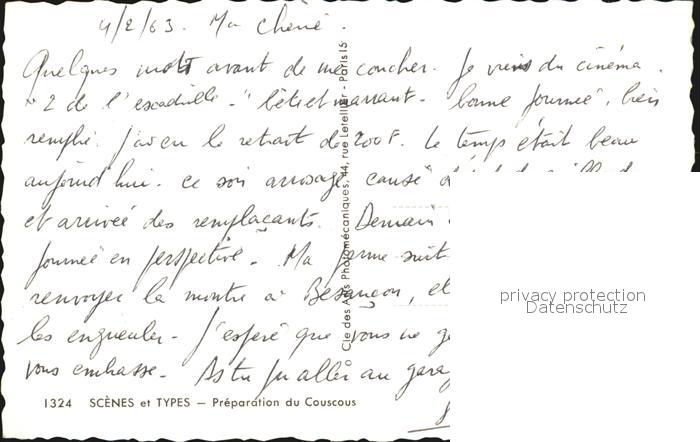 4/2/63. Ma chérie.
Quelques mots avant de me coucher. Je viens du cinéma.
"2 de l'escadrille." bête et marrant. bonne journée, bien
remplie. j'ai eu le retrait de 200F. Le temps était beau
aujourd'hui. ce soir arrosage causé
et arrivée des remplaçants. Demain
journée en perspective. Ma
renvoyer la montre à Besançon, et
les engueuler. J'espère que vous ne
vous embrasse. As tu pu aller au garag
1324 SCÈNES et TYPES — Préparation du Couscous
© Cie des Arts Photomécaniques, 44, rue Letellier - Paris 15
privacy protection
Datenschutz